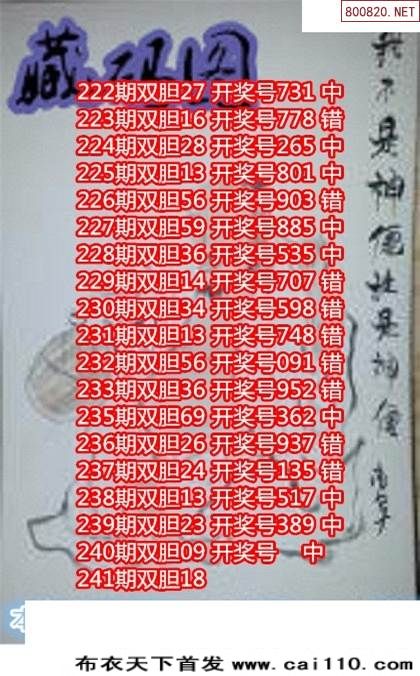 800820.NET
藏码图
222期双胆27 开奖号731 中
223期双胆16 开奖号778 错
224期双胆28 开奖号265 中
225期双胆13 开奖号801 中
226期双胆56 开奖号903 错
227期双胆59 开奖号885 中
228期双胆36 开奖号535 中
229期双胆14 开奖号707 错
230期双胆34 开奖号598 错
231期双胆13 开奖号748 错
232期双胆56 开奖号091 错
233期双胆36 开奖号952 错
235期双胆69 开奖号362 中
236期双胆26 开奖号937 错
237期双胆24 开奖号135 错
238期双胆13 开奖号517 中
239期双胆23 开奖号389 中
240期双胆09 开奖号 中
241期双胆18
我不是神仙
是神仙
布衣天下首发 www.cai110.com